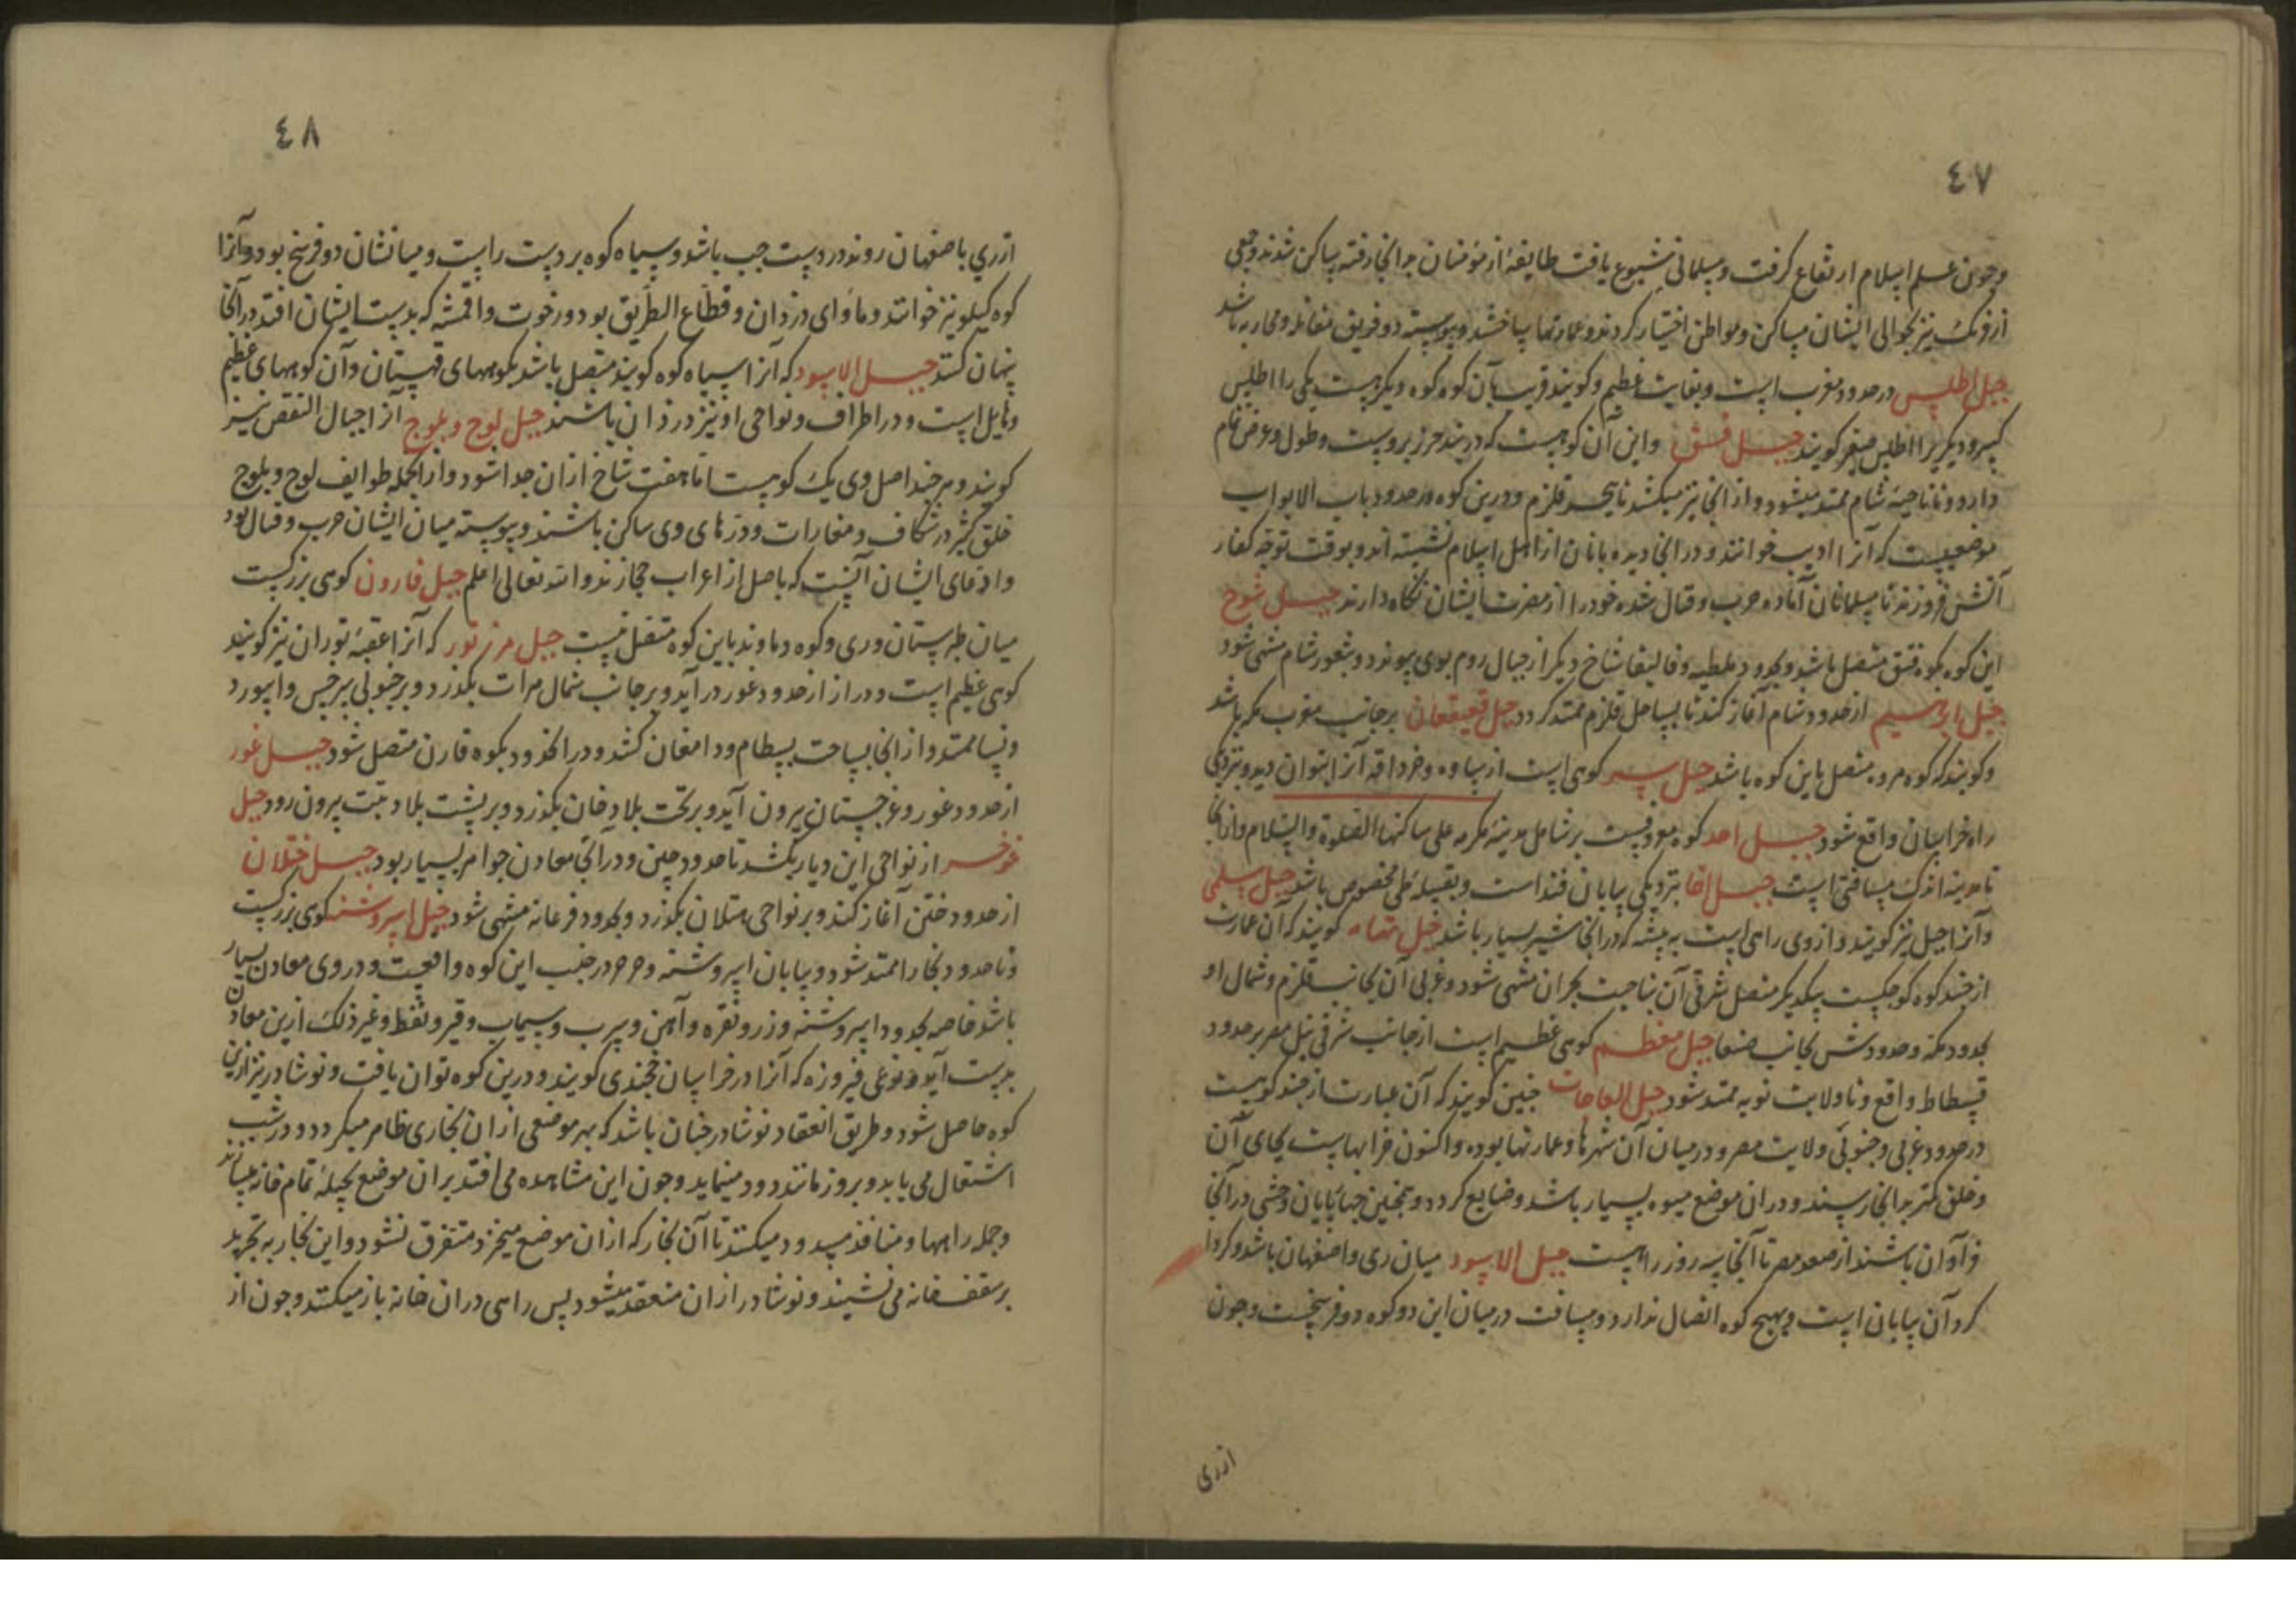 ٤٧
وچون علم اسلام ارتفاع گرفت و مسلمانی شیوع یافت طایفهٔ از مؤمنان بدانجا رفته ساکن شدند و جمعی
از فرنگ نیز بحوالی ایشان مساکن و مواطن اختیار کردند و عمارتها ساختند و پیوسته دو فریق مقاتله و محاربه باشد
جبل اطلس در حدود مغرب است و بغایت عظیم و کویند قریب بآن کوه کوه دیکر هست یکی را اطلس
کبیر و دیکریرا اطلس صغیر کویند جبل قبق و این آن کوهست که دربند خزر بروست و طول و عرض تمام
دارد و تا ناحیهٔ شام ممتد میشود و از انجا نیز میکشد تا بحر قلزم و درین کوه در حدود باب الابواب
موضعیست که آنرا ادیب خوانند و در انجا دیده بانان از اهل اسلام نشسته اند و بوقت توجه کفار
آتش فروزند تا مسلمانان آماده حرب و قتال شده خود را از مضرت ایشان نکاه دارند جبل شوخ
این کوه بکوه قبق متصل باشد و بحدود ملطیه و قالیقلا شاخ دیکر از جبال روم بوی پیوندد و بثغور شام منتهی شود
جبل ابراهیم از حدود شام آغاز کند تا بساحل قلزم ممتد کردد جبل قعیقعان بر جانب مغرب مکه باشد
و کویند که کوه مروه متصل باین کوه باشد جبل سپر کوهی است از ساوه و خرداقه آنرا ابتوان دید و بنزدیکی
راه خراسان واقع شود جبل احد کوه معروفیست بر شمال مدینه مکرمه علی ساکنها الصلوة والسلام و از انجا
تا مدینه اندک مسافتی است جبل اجا بنزدیکی بیابان فید است و بقبیله طی مخصوص باشد جبل سلمی
و آنرا جبل نیز کویند و از وی راهی است به بیشه که در انجا شیر بسیار باشد جبل تهامه کویند که آن عبارت
از چند کوه کوچکست بیکدیکر متصل شرقی آن بناحیت بحران منتهی شود و غربی آن بجانب قلزم و شمال او
بحدود مکه و حدودش بجانب صنعا جبل مقطم کوهی عظیم است از جانب شرقی نیل مصر بر حدود
فسطاط واقع و تا ولایت نوبه ممتد شود جبل الواحات چنین کویند که آن عبارت از چند کوهست
در حدود غربی و جنوبی ولایت مصر و در میان آن شهرها و عمارتها بوده و اکنون خرابهاست بجای آن
و خلق کمتر بدانجا رسند و در ان موضع میوه بسیار باشد و ضایع کردد و همچنین چهارپایان وحشی در انجا
فراوان باشند از صعید مصر تا آنجا سه روز راهست جبل الاسود میان ری و اصفهان باشد و کردا
کرد آن بیابان است و بهیچ کوه اتصال ندارد و مسافت در میان این دو کوه دو فرسخست و چون
ازری
٤٨
ازری باصفهان روند در دست چپ باشد و سیاه کوه بر دست راست و میانشان دو فرسخ بود و آنرا
کوه کیلویه نیز خوانند و مأوای دزدان و قطاع الطریق بود و رخوت و اقمشه که بدست ایشان افتد در انجا
پنهان کنند جبل الاسود که آنرا سیاه کوه کویند متصل باشد بکوههای قهستان و آن کوههای عظیم
و هایل است و در اطراف و نواحی او نیز دزدان باشند جبل لوج و بلوج آنرا جبال القفص نیز
کویند و هر چند اصل وی یک کوهیست اما هفت شاخ از ان جدا شود و از انجمله طوایف لوج و بلوج
خلق کثیر در شکاف و مغارات و دزهای وی ساکن باشند و پیوسته میان ایشان حرب و قتال بود
و ادعای ایشان آنست که باصل از اعراب حجازند والله تعالی اعلم جبل قارون کوهی بزرکست
میان طبرستان و ری و کوه دماوند باین کوه متصل نیست جبل مرز تور که آنرا عقبهٔ توران نیز کویند
کوهی عظیم است و دراز از حدود غور درآید و بر جانب شمال هرات بکذرد و بر جنوبی سرخس و ابیورد
و نسا ممتد و از انجا بساحت بسطام و دامغان کشد و در انحدود بکوه قارن متصل شود جبل غور
از حدود غور و غرجستان بیرون آید و بر تحت بلاد خان بکذرد و بر پشت بلاد تبت بیرون رود جبل
غوخسر از نواحی این دیار بکشد تا حدود چین و در انجا معادن جواهر بسیار بود جبل ختلان
از حدود ختن آغاز کند و بر نواحی ختلان بکذرد و بحدود فرغانه منتهی شود جبل اسروشنه کوهی بزرکست
و تا حدود بخارا ممتد شود و بیابان اسروشنه و حرحر در جنب این کوه واقعست و در وی معادن بسیار
باشد خاصه بحدود اسروشنه و زر و نقره و آهن و سرب و سیماب و قیر و نفط و غیر ذلک ازین معادن
بدست آید و نوعی فیروزه که آنرا در خراسان خجندی کویند و درین کوه توان یافت و نوشادر نیز ازین
کوه حاصل شود و طریق انعقاد نوشادر چنان باشد که بهر موضعی از ان بخاری ظاهر میکردد و در شب
اشتعال می یابد و بروز مانند دود مینماید و چون این مشاهده می افتد بر ان موضع بحیلهٔ تمام خانه میسازند
و جمله راهها و منافذ مسدود میکنند تا آن بخار که از ان موضع میخیزد متفرق نشود و این بخار به تجرید
بر سقف خانه می نشیند و نوشادر از ان منعقد میشود پس راهی در ان خانه باز میکنند و چون از